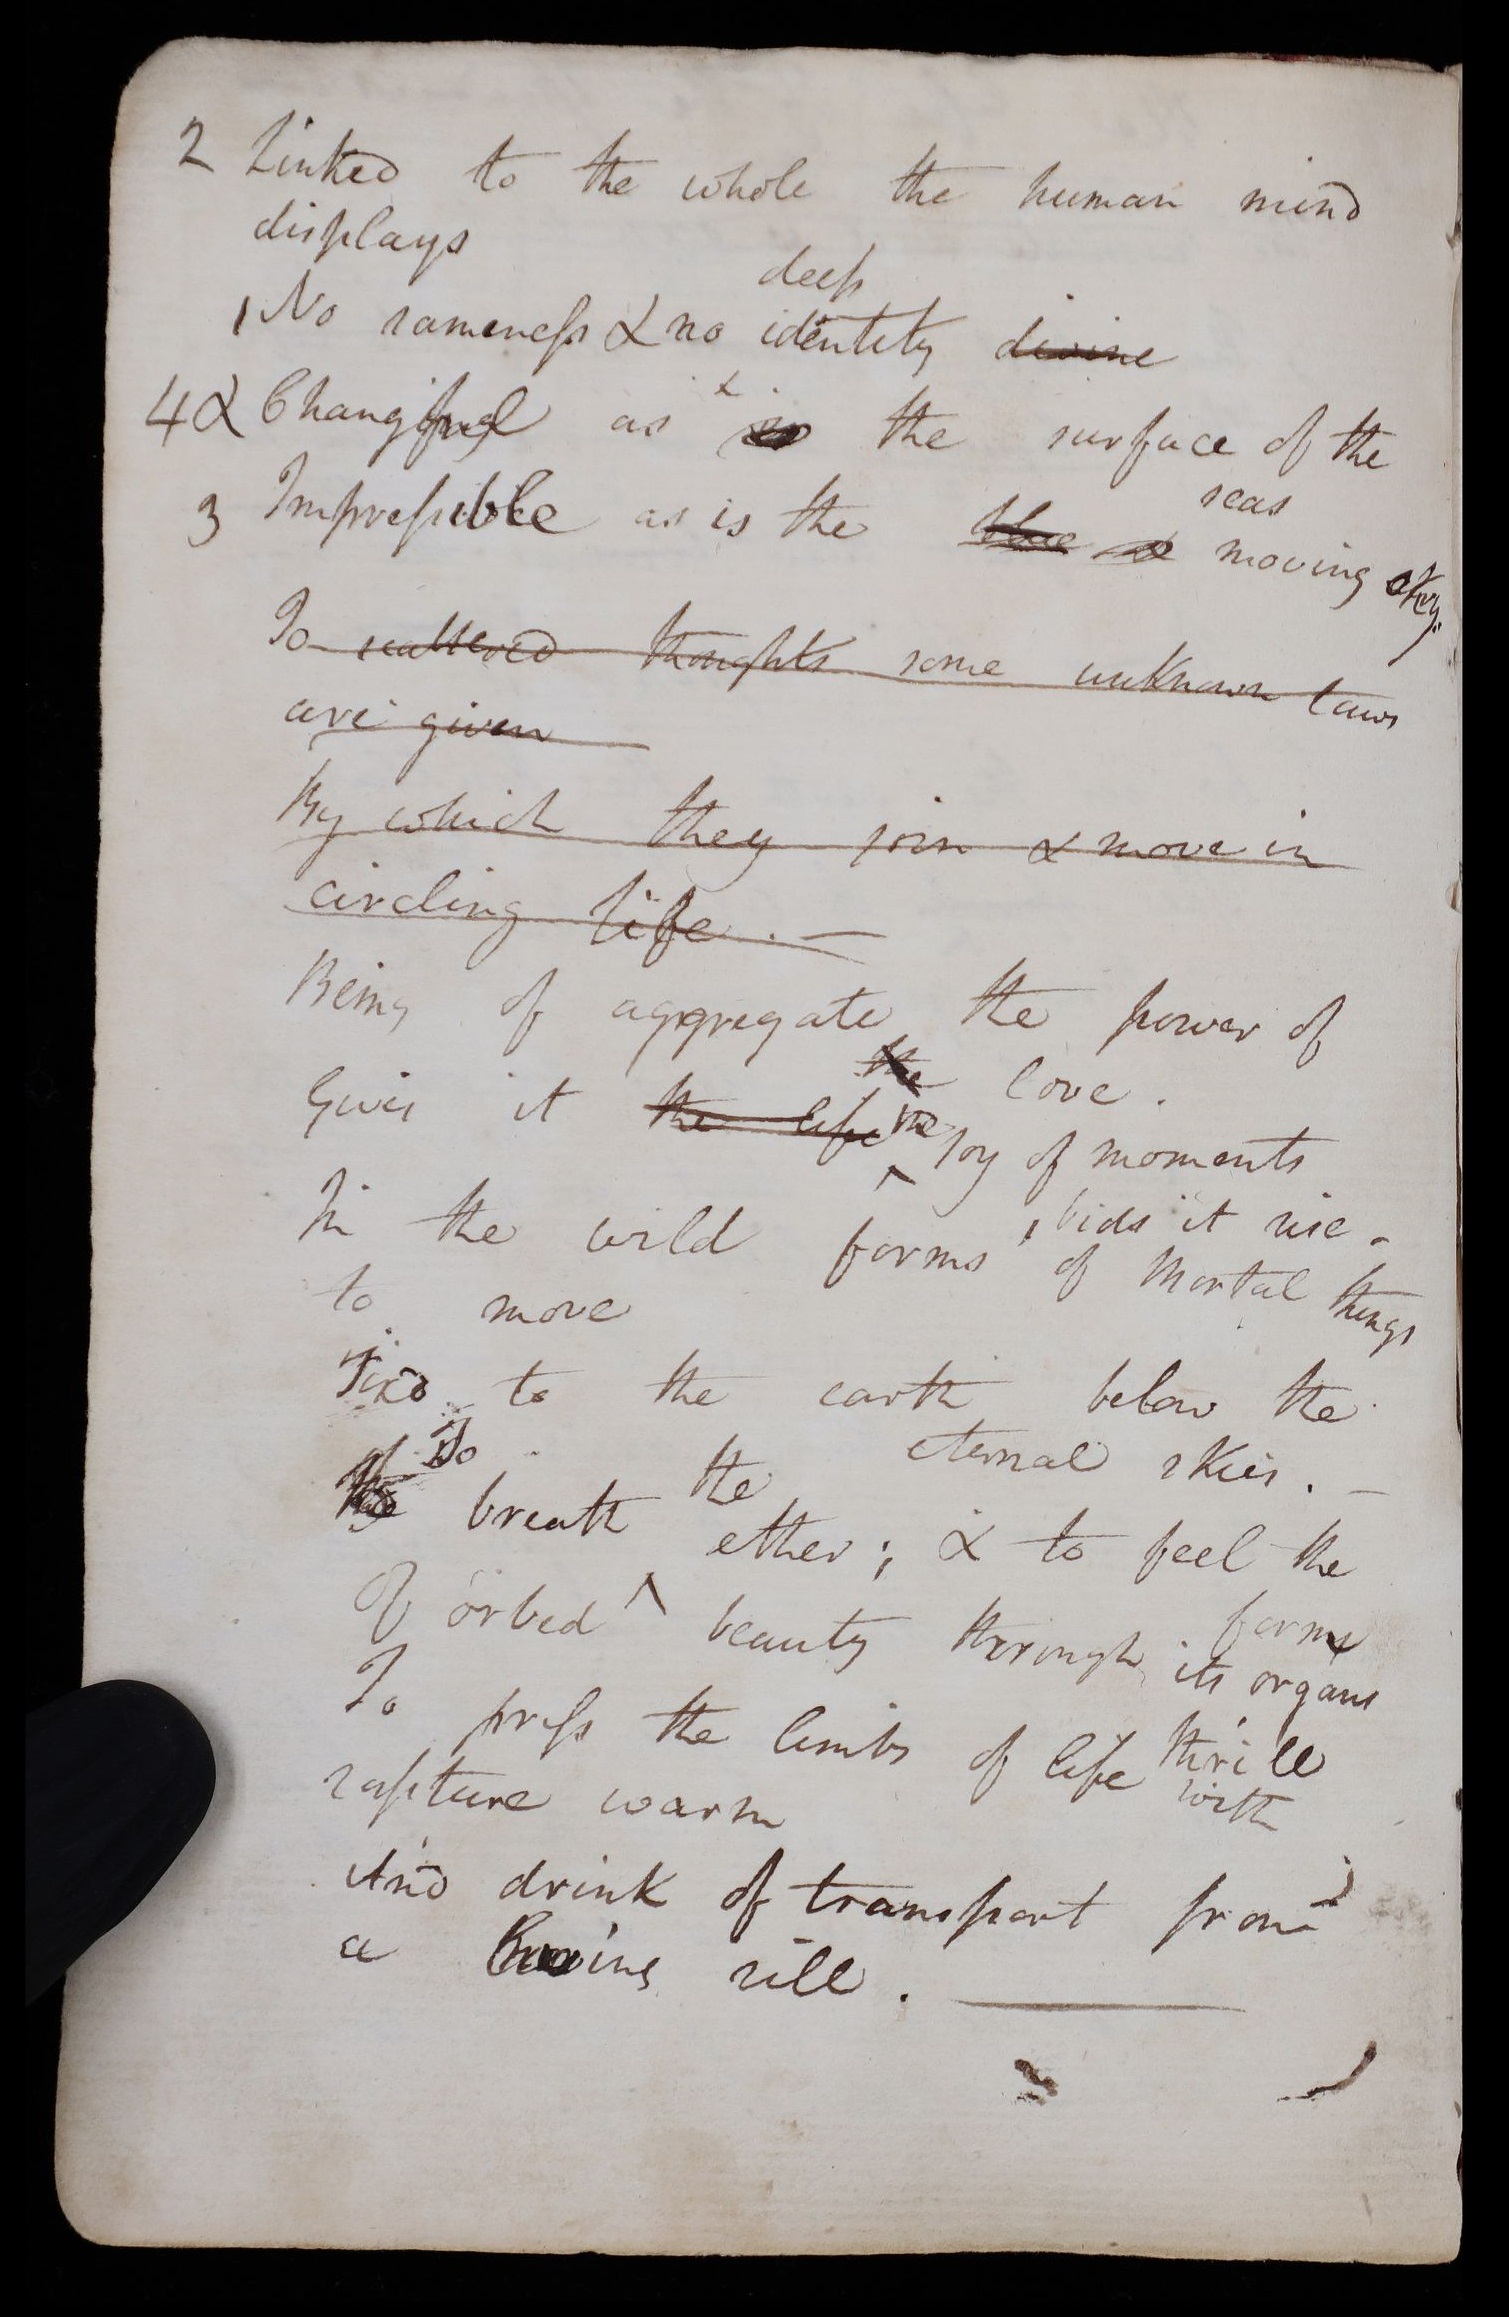 2 Linked to the whole the human mind
displays
deep
1 No sameness & no identity divine
4 & Changeful as the surface of the
seas
3 Impressible as is the blue & moving sky.
To scattered thoughts some unknown laws
are given
By which they join & move in
circling life. —
Being of aggregate the power of
love.
Gives it the life the the Joy of moments
, bids it rise -
In the wild forms of mortal things
to move
Fixd to the earth below the
eternal skies. —
To breath the ether; & to feel the
forms
Of orbed beauty through its organs
thrill
To press the limbs of life with
rapture warm
And drink of transport from
a living rill.